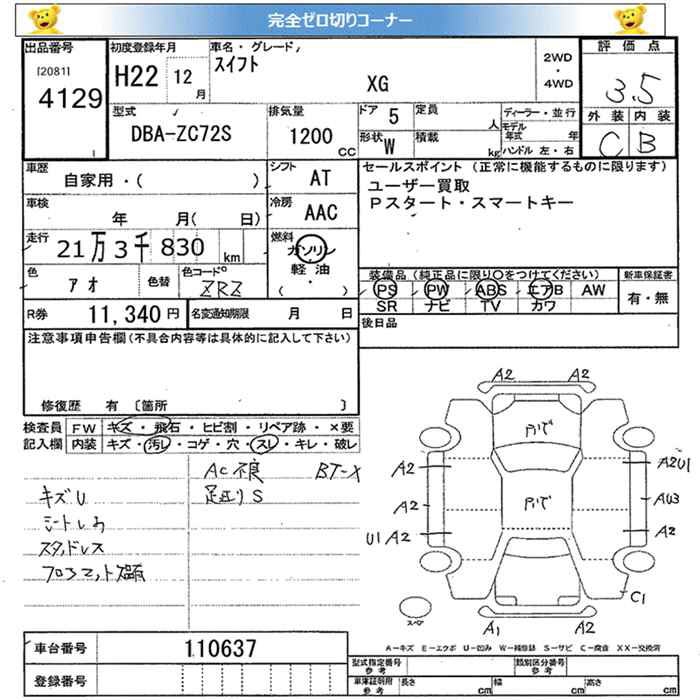 完全ゼロ切りコーナー
出品番号
[2081]
4129
初度登録年月
H22 12月
車名・グレード
スイフト
XG
2WD
・
4WD
評価点
3.5
外装 内装
C B
型式
DBA-ZC72S
排気量
1200
CC
ドア 5
形状 W
定員 人
積載 kg
ディーラー・並行
モデル年式 年
ハンドル 左・右
車歴
自家用・( )
シフト
AT
セールスポイント (正常に機能するものに限ります)
ユーザー買取
Pスタート・スマートキー
車検
年 月( 日)
冷房
AAC
走行
21万3千830 km
燃料
ガソリン
軽油
・
( )
色
アオ
色替
色コードNo
ZRZ
装備品 (純正品に限り○をつけてください)
PS PW ABS エアB AW
SR ナビ TV カワ
新車保証書
有・無
R券 11,340円
名変通知期限 月 日
後日品
注意事項申告欄(不具合内容等は具体的に記入して下さい)
修復歴 有 〔箇所 〕
検査員記入欄
FW キズ・飛石・ヒビ割・リペア跡・×要
内装 キズ・汚レ・コゲ・穴・スレ・キレ・破レ
AC不良 BT-X
キズU 足廻りS
スタッドレス
A2 A2
アバで
アバで
A2 A2U1
A2 AU3
U1 A2 A2
C1
スペア
A1 A2
A-キズ E-エクボ U-凹み W-補修跡 S-サビ C-腐食 XX-交換済
車台番号 110637
登録番号
型式指定番号
参考
類別区分番号
参考
車庫証明用
参考
長さ cm 幅 cm 高さ cm